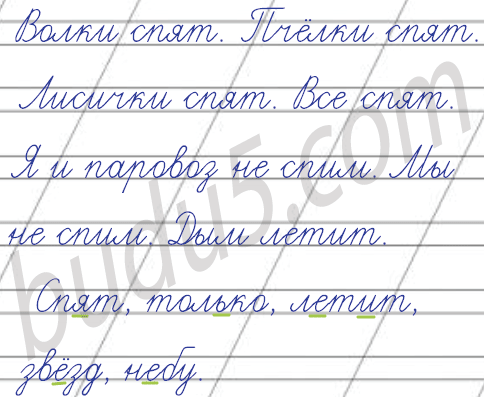 Волки спят. Пчёлки спят.
Лисички спят. Все спят.
Я и паровоз не спим. Мы
не спим. Дым летит.
Спят, только, летит,
звёзд, небу.
budu5.com